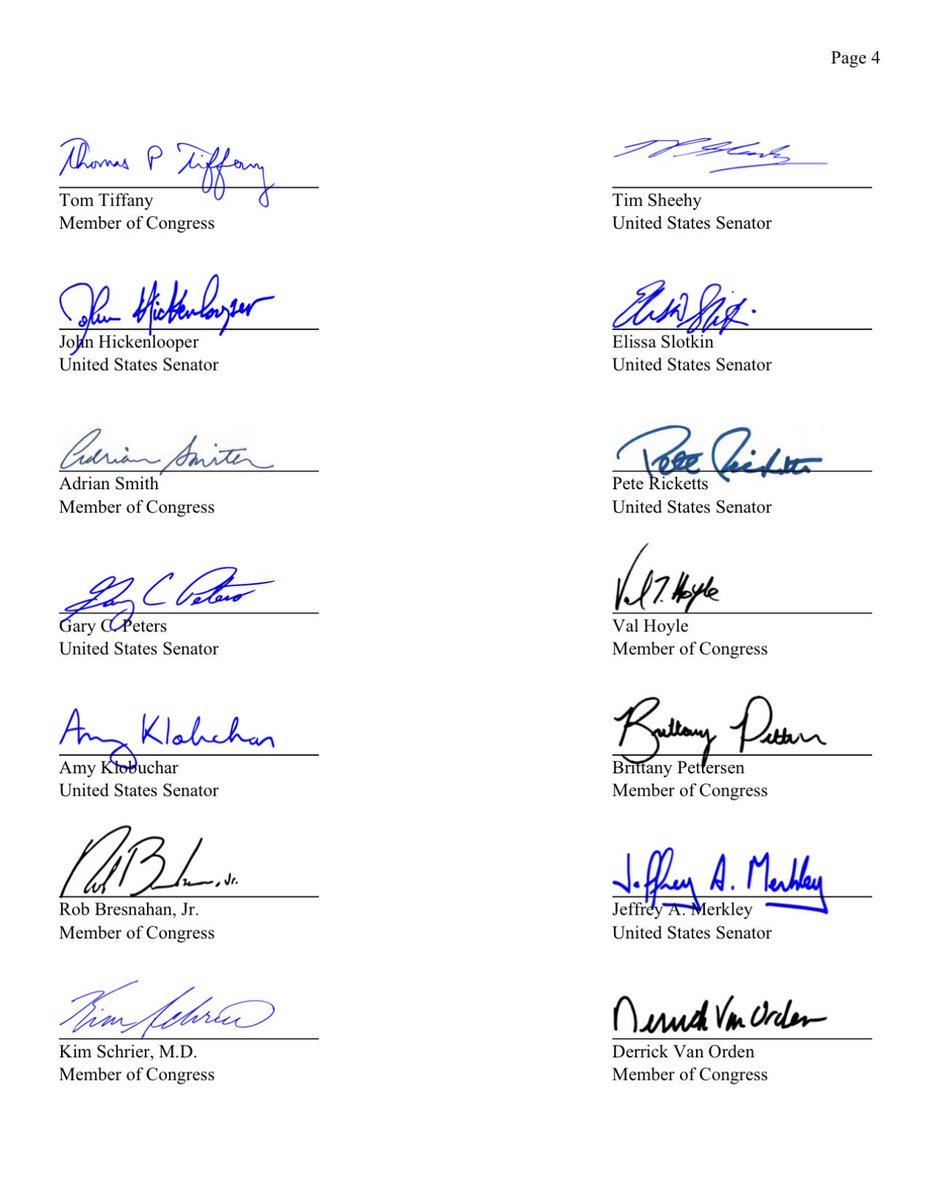 Page 4
Thomas P Tiffany
Tom Tiffany
Member of Congress
Tim Sheehy
United States Senator
John Hickenlooper
John Hickenlooper
United States Senator
Elissa Slotkin
Elissa Slotkin
United States Senator
Adrian Smith
Adrian Smith
Member of Congress
Pete Ricketts
Pete Ricketts
United States Senator
Gary C Peters
Gary C. Peters
United States Senator
Val T. Hoyle
Val Hoyle
Member of Congress
Amy Klobuchar
Amy Klobuchar
United States Senator
Brittany Pettersen
Brittany Pettersen
Member of Congress
Rob Bresnahan, Jr.
Member of Congress
Jeffrey A. Merkley
Jeffrey A. Merkley
United States Senator
Kim Schrier
Kim Schrier, M.D.
Member of Congress
Derrick Van Orden
Derrick Van Orden
Member of Congress